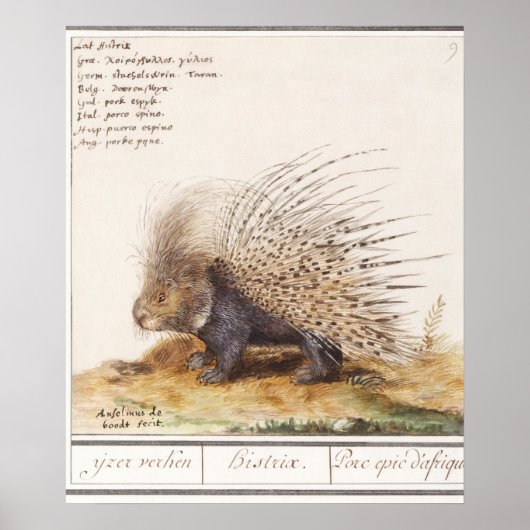 Lat Histrix
9
Græ. Χοιρόγρυλλος. γύλιος
Germ. stachelswein. Taran.
Belg. Dooren/wyn.
Gal. pork espyk.
Ital. porco spino.
Hisp. puerco espino
Ang. porke pyne.
Anselmus de
boodt fecit.
ijzer verken
Histrix.
Porc epic d'afrique